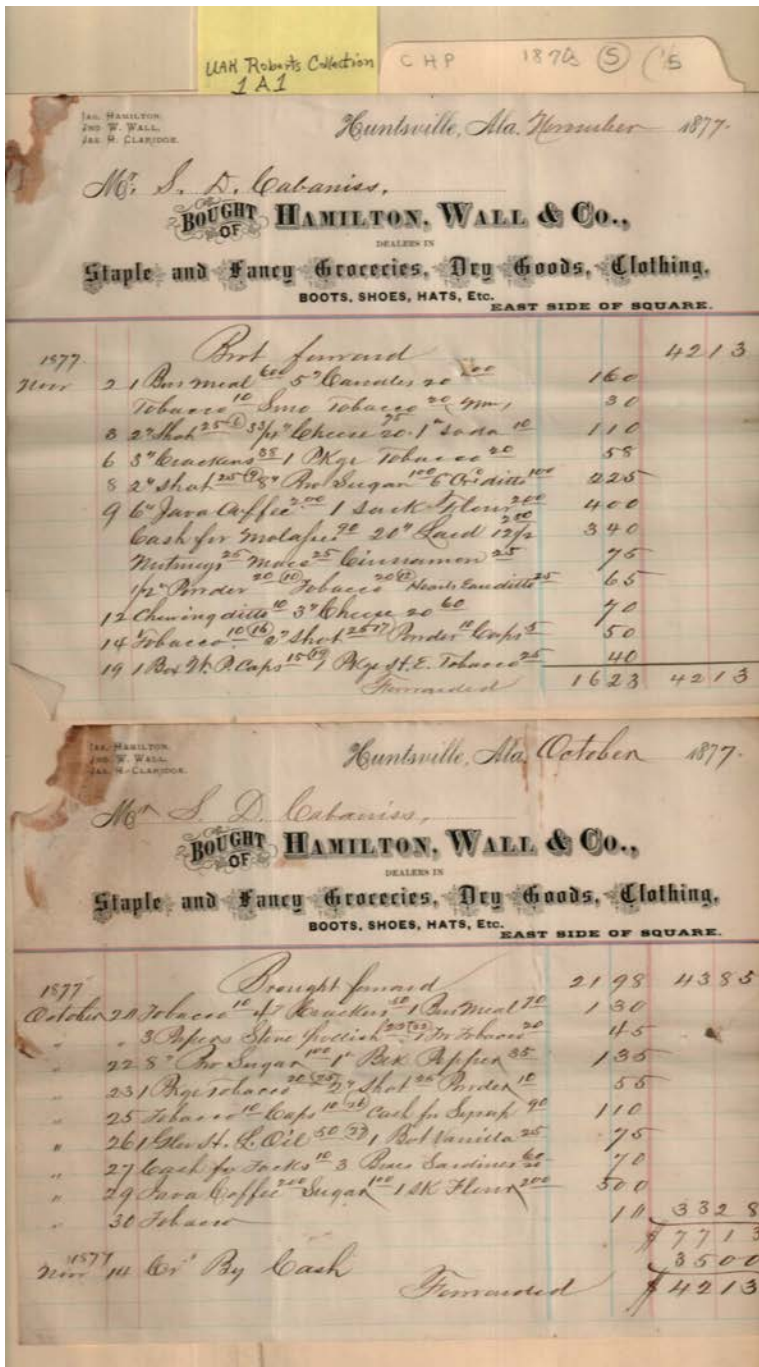 UAH Roberts Collection
1 A 1
CHP 1870s (5) ('5
JAS. HAMILTON.
JNO W. WALL.
JAS. H. CLARIDGE.
Huntsville, Ala. November 1877.
Mr. S. D. Cabaniss,
BOUGHT OF HAMILTON, WALL & CO.,
DEALERS IN
Staple and Fancy Groceries, Dry Goods, Clothing,
BOOTS, SHOES, HATS, Etc.
EAST SIDE OF SQUARE.
1877 Brot forward 42 13
Nov 2 1 Bus Meal 60 5" Candles 20 1 00 1 60
Tobacco 10 Smo Tobacco 20 30
3 2" Shot 25 3 3/4" Cheese 20 75 1" Soda 10 1 10
6 3" Crackers 38 1 Pkge Tobacco 20 58
8 2" Shot 25 8" Bro Sugar 1 00 ditto 1 00 2 25
9 6" Java Coffee 2 00 1 Sack Flour 2 00 4 00
Cash for Molasses 90 20" Lard 12 1/2 2 50 3 40
Nutmegs 25 Mace 25 Cinnamon 25 75
1/2" Powder 20 (10) Tobacco 20 (12) ditto 25 65
12 Chewing ditto 10 3" Cheese 20 60 70
14 Tobacco 10 (16) 2" Shot 25 17 Powder 10 Caps 5 50
19 1 Box W. P. Caps 15 (19) 1 Pkge St. E. Tobacco 25 40
Forwarded 16 23 42 13
JAS. HAMILTON.
JNO W. WALL.
JAS. H. CLARIDGE.
Huntsville, Ala. October 1877.
Mr S. D. Cabaniss,
BOUGHT OF HAMILTON, WALL & CO.,
DEALERS IN
Staple and Fancy Groceries, Dry Goods, Clothing,
BOOTS, SHOES, HATS, Etc.
EAST SIDE OF SQUARE.
1877 Brought forward 21 98 43 85
October 20 Tobacco 10 4" Crackers 50 1 Bus Meal 70 1 30
" " 3 Papers Stove Pollish 25 (22) Tobacco 20 45
" 22 8" Bro Sugar 1 00 1" Blk Pepper 35 1 35
" 23 1 Pkge Tobacco 20 (25) 2" Shot 25 Powder 10 55
" 25 Tobacco 10 Caps 10 (26) Cash for Syrup 90 1 10
" 26 1 St. L. Oil 50 (27) 1 Bot Vanilla 25 75
" 27 Cash for Tacks 10 3 Boxes Sardines 20 60 70
" 29 Java Coffee 2 00 Sugar 1 00 1 Sk Flour 2 00 5 00
" 30 Tobacco 10 33 28
$77 13
1877
Nov 14 Cr" By Cash 35 00
Forwarded $42 13